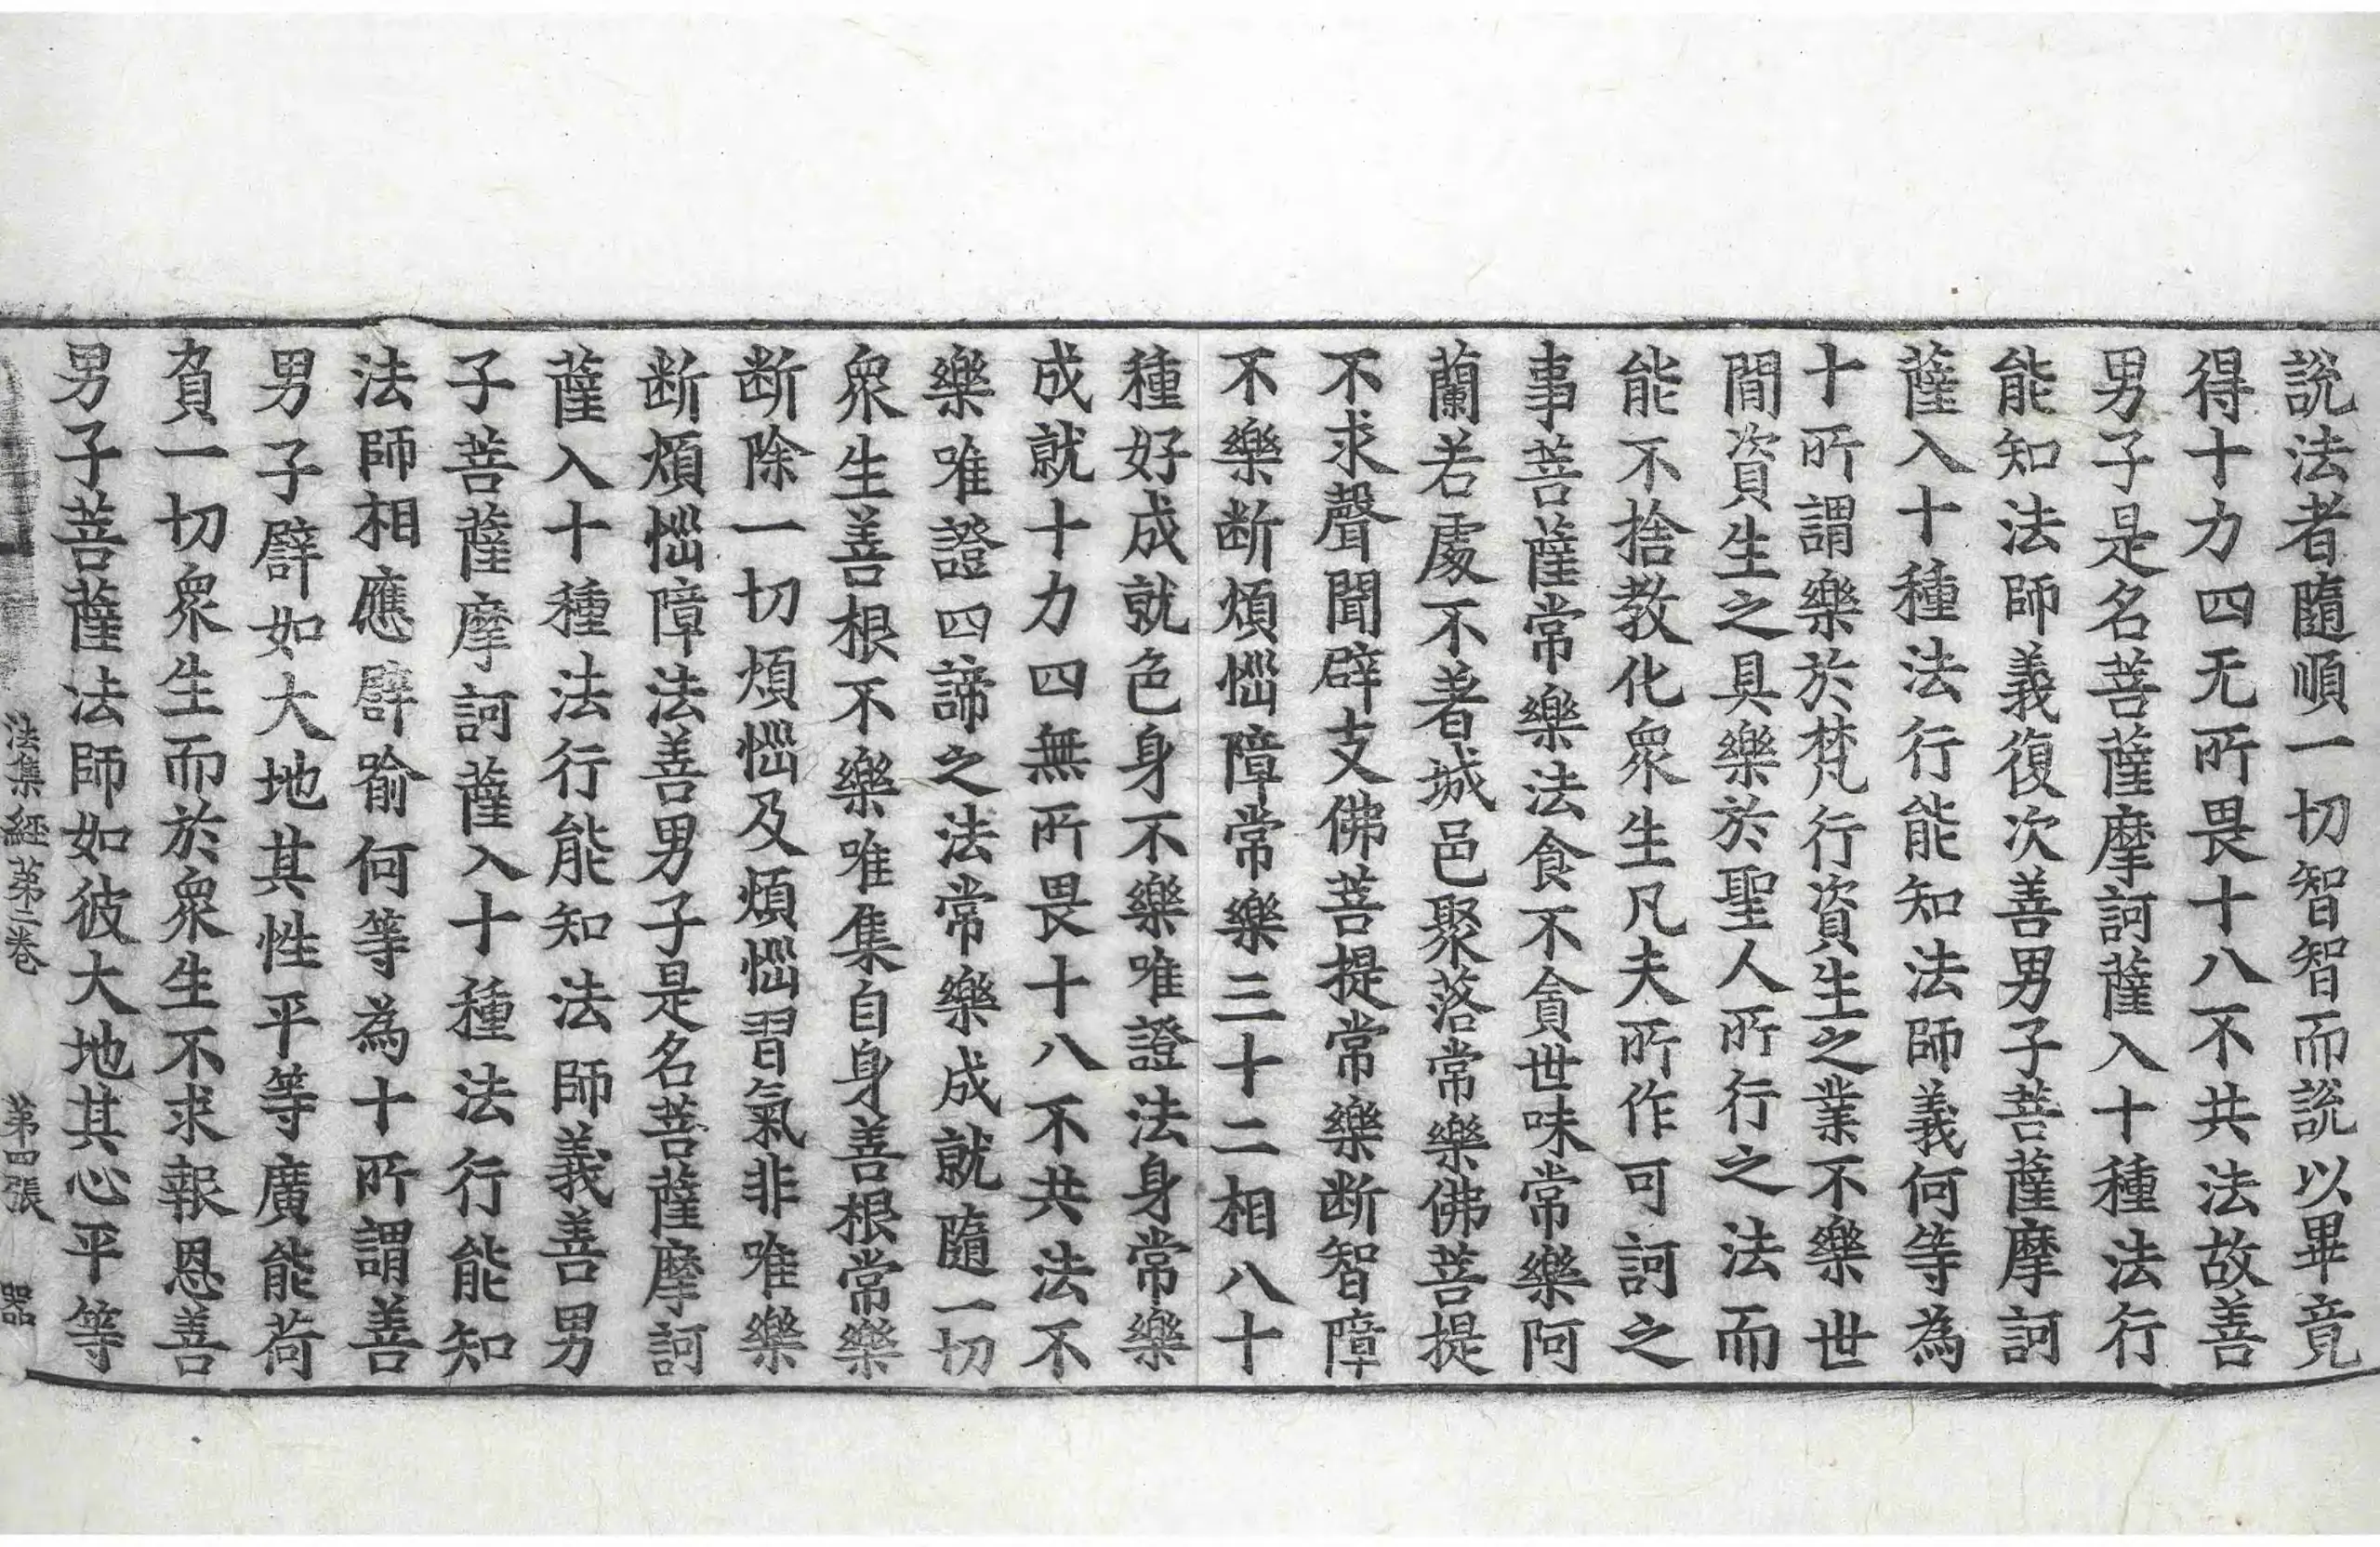 說法者隨順一切智智而說以畢竟
得十力四无所畏十八不共法故善
男子是名菩薩摩訶薩入十種法行
能知法師義復次善男子菩薩摩訶
薩入十種法行能知法師義何等為
十所謂樂於梵行資生之業不樂世
閒資生之具樂於聖人所行之法而
能不捨教化衆生凡夫所作可訶之
事菩薩常樂法食不貪世味常樂阿
蘭若處不著城邑聚落常樂佛菩提
不求聲聞辟支佛菩提常樂斷智障
不樂斷煩惱障常樂三十二相八十
種好成就色身不樂唯證法身常樂
成就十力四無所畏十八不共法不
樂唯證四諦之法常樂成就隨一切
衆生善根不樂唯集自身善根常樂
斷除一切煩惱及煩惱習氣非唯樂
斷煩惱障法善男子是名菩薩摩訶
薩入十種法行能知法師義善男
子菩薩摩訶薩入十種法行能知
法師相應譬喻何等為十所謂善
男子譬如大地其性平等廣能荷
負一切衆生而於衆生不求報恩善
男子菩薩法師如彼大地其心平等
法集經第二卷 第四張 器